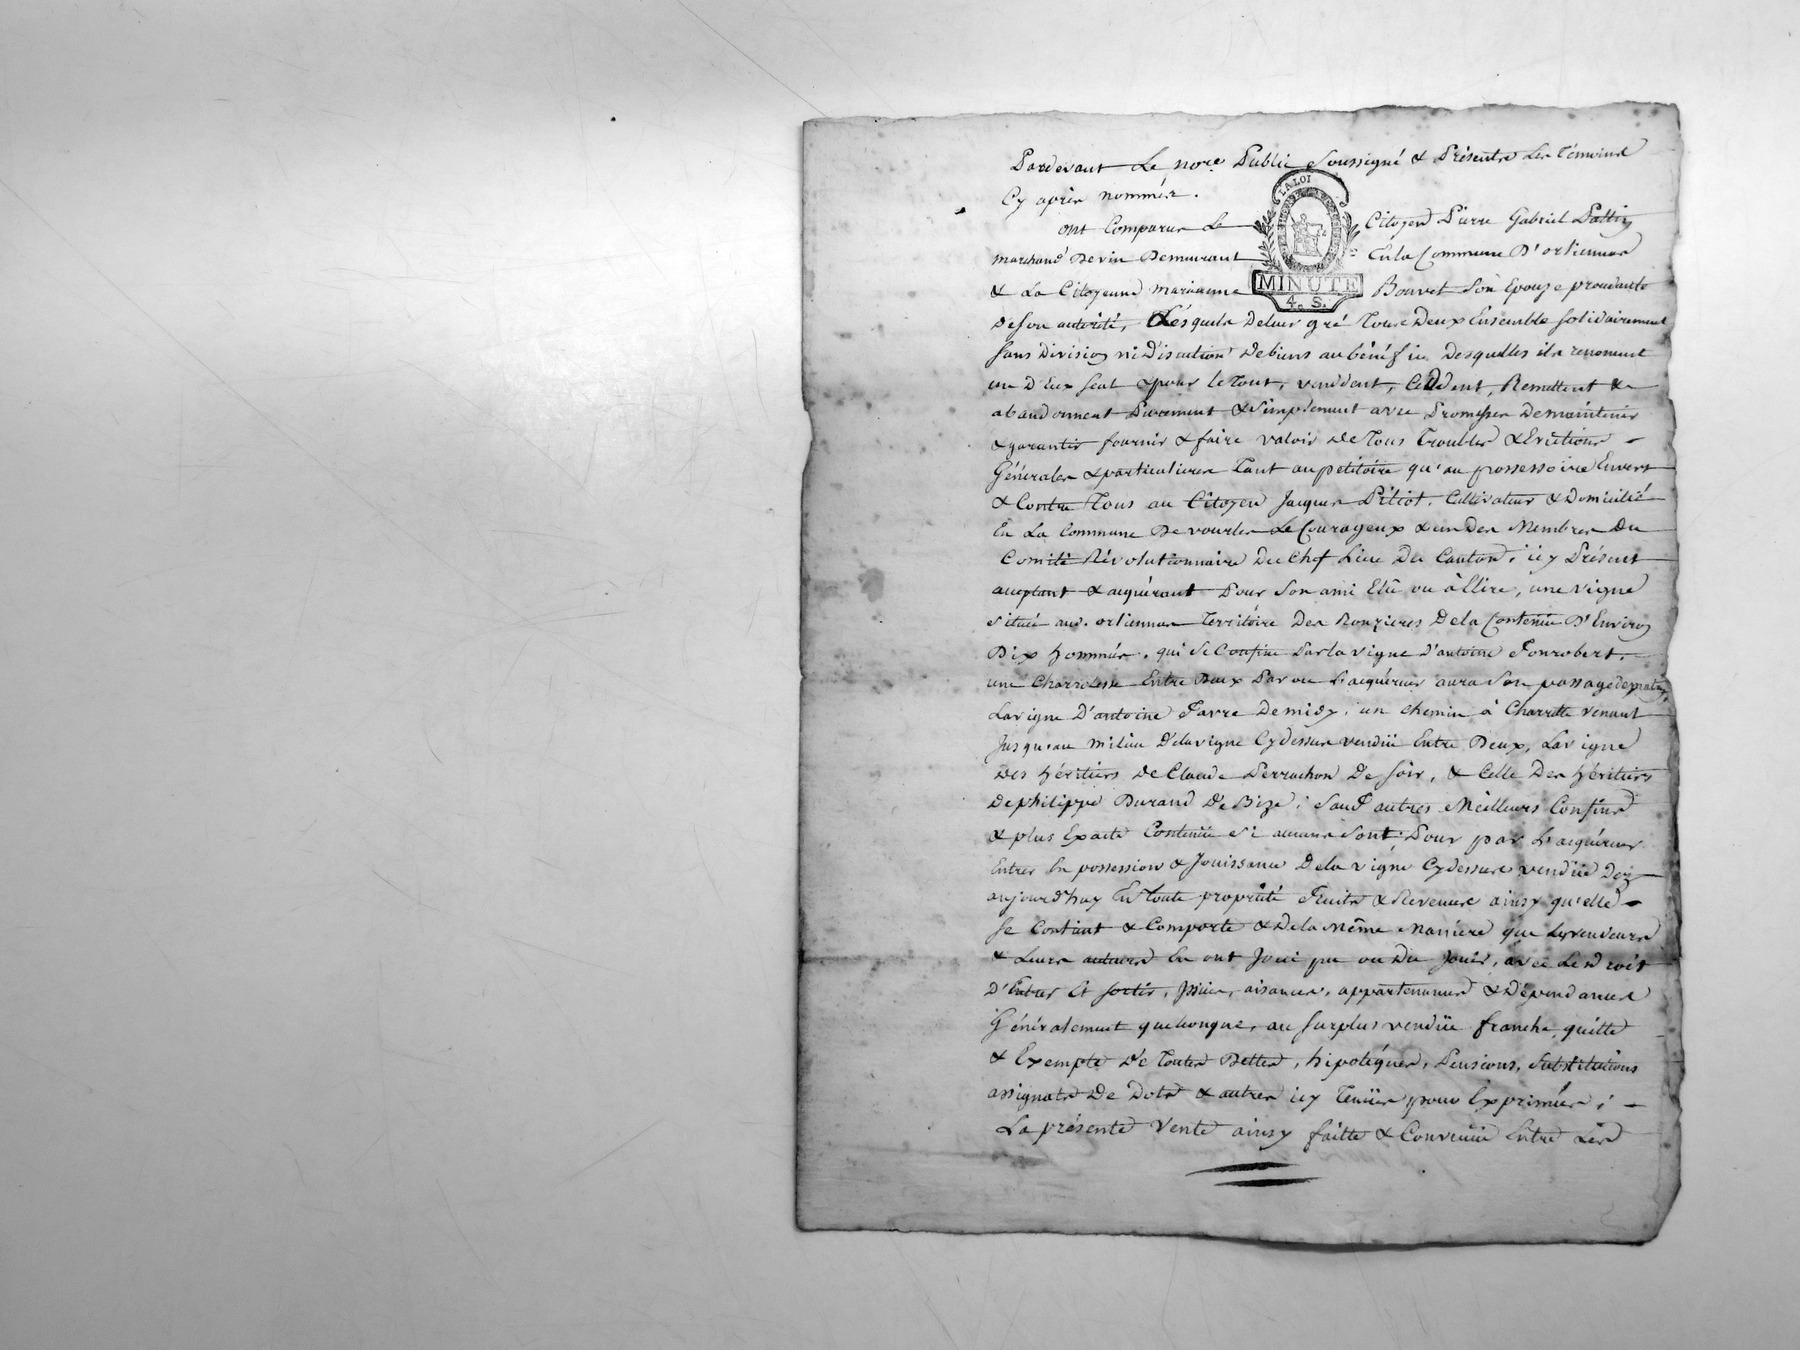 Pardevant Le nore. Public Soussigné & Présents Les Témoins
Cy après nommés.
LA LOI
ont Comparus Le Citoyen Pierre Gabriel
marchand De vin Demeurant En la Commune D'orliennas
MINUTE
& La Citoyenne mariaenne Bouvet Son Epouse procédante
4. S.
De son autorité, Lesquels De leur gré Tous Deux Ensemble solidairement
sans Division ni Discution De biens au bénéfice Desquelles ils renoncent
un D'Eux seul & pour le Tout, vendent, Cèddent, Remettent &
abandonnent Purement & Simplement avec Promesses De maintenir
& garantir fournir & faire valoir De Tous Troubles & Evictions
Générales & particulieres Tant au petitoire qu'au possessoire Envers
& Contre Tous au Citoyen Jacques Pitiot, Cultivateur & Domicilié
En La Commune De vourles Le Courageux & un Des Membres Du
Comité Révolutionnaire Du Chef Lieu Du Canton, icy Présent
acceptant & acquérant Pour Son ami Elû ou à Elire, une vigne
située aud. orliennas Territoire Des Ronzieres De la Contenue D'Environ
Dix hommés, qui se Confine Par la vigne D'antoine Fonrobert,
une Charrolesse Entre Deux Par ou L'acquéreur aura Son passage de matin,
La vigne D'antoine Favre De midy, un chemin à Charrette venant
Jusqu'au milieu De la vigne Cy dessus vendüe Entre Deux, La vigne
Des héritiers De Claude Perrachon De soir, & Celle Des héritiers
De philippe Durand De Bize; Sauf autres Meilleurs Confins
& plus Exacte Contenüe Si aucuns Sont Pour par L'acquéreur
Entrer En possession & Jouissance De la vigne Cy dessus vendüe Dez
aujourd'huy En Toute proprieté Fruits & Revenus ainsy qu'elle
se Contient & Comporte & De la Même Maniere que Les vendeurs
& Leurs auteurs En ont Joui pu ou Du Jouir, avec Le droit
D'Entrer Et sortir, Issües, aisances, appartenances & Dépendances
Généralement quelconque, au surplus vendüe franche quitte
& Exempte De Toutes Dettes, hipotéques, Pensions, Substitutions
assignats De Dots & autres icy Tenües pour Exprimées;
La présente Vente ainsy faitte & Convenüe Entre Les